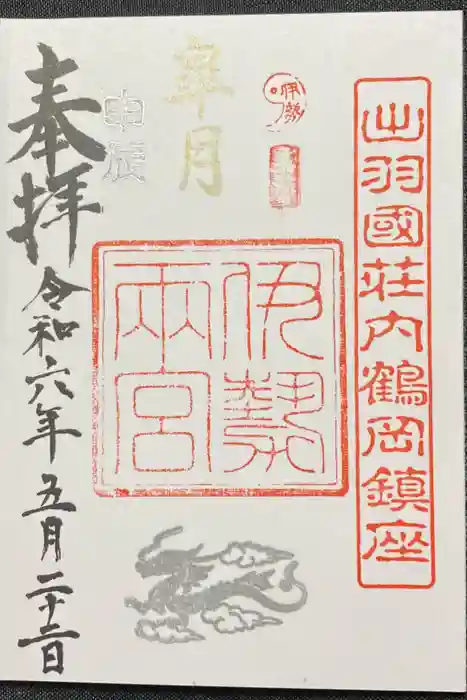 出羽國荘内鶴岡鎮座
伊勢
伊勢
兩宮
皐月
甲辰
奉拝
令和六年五月二十二日